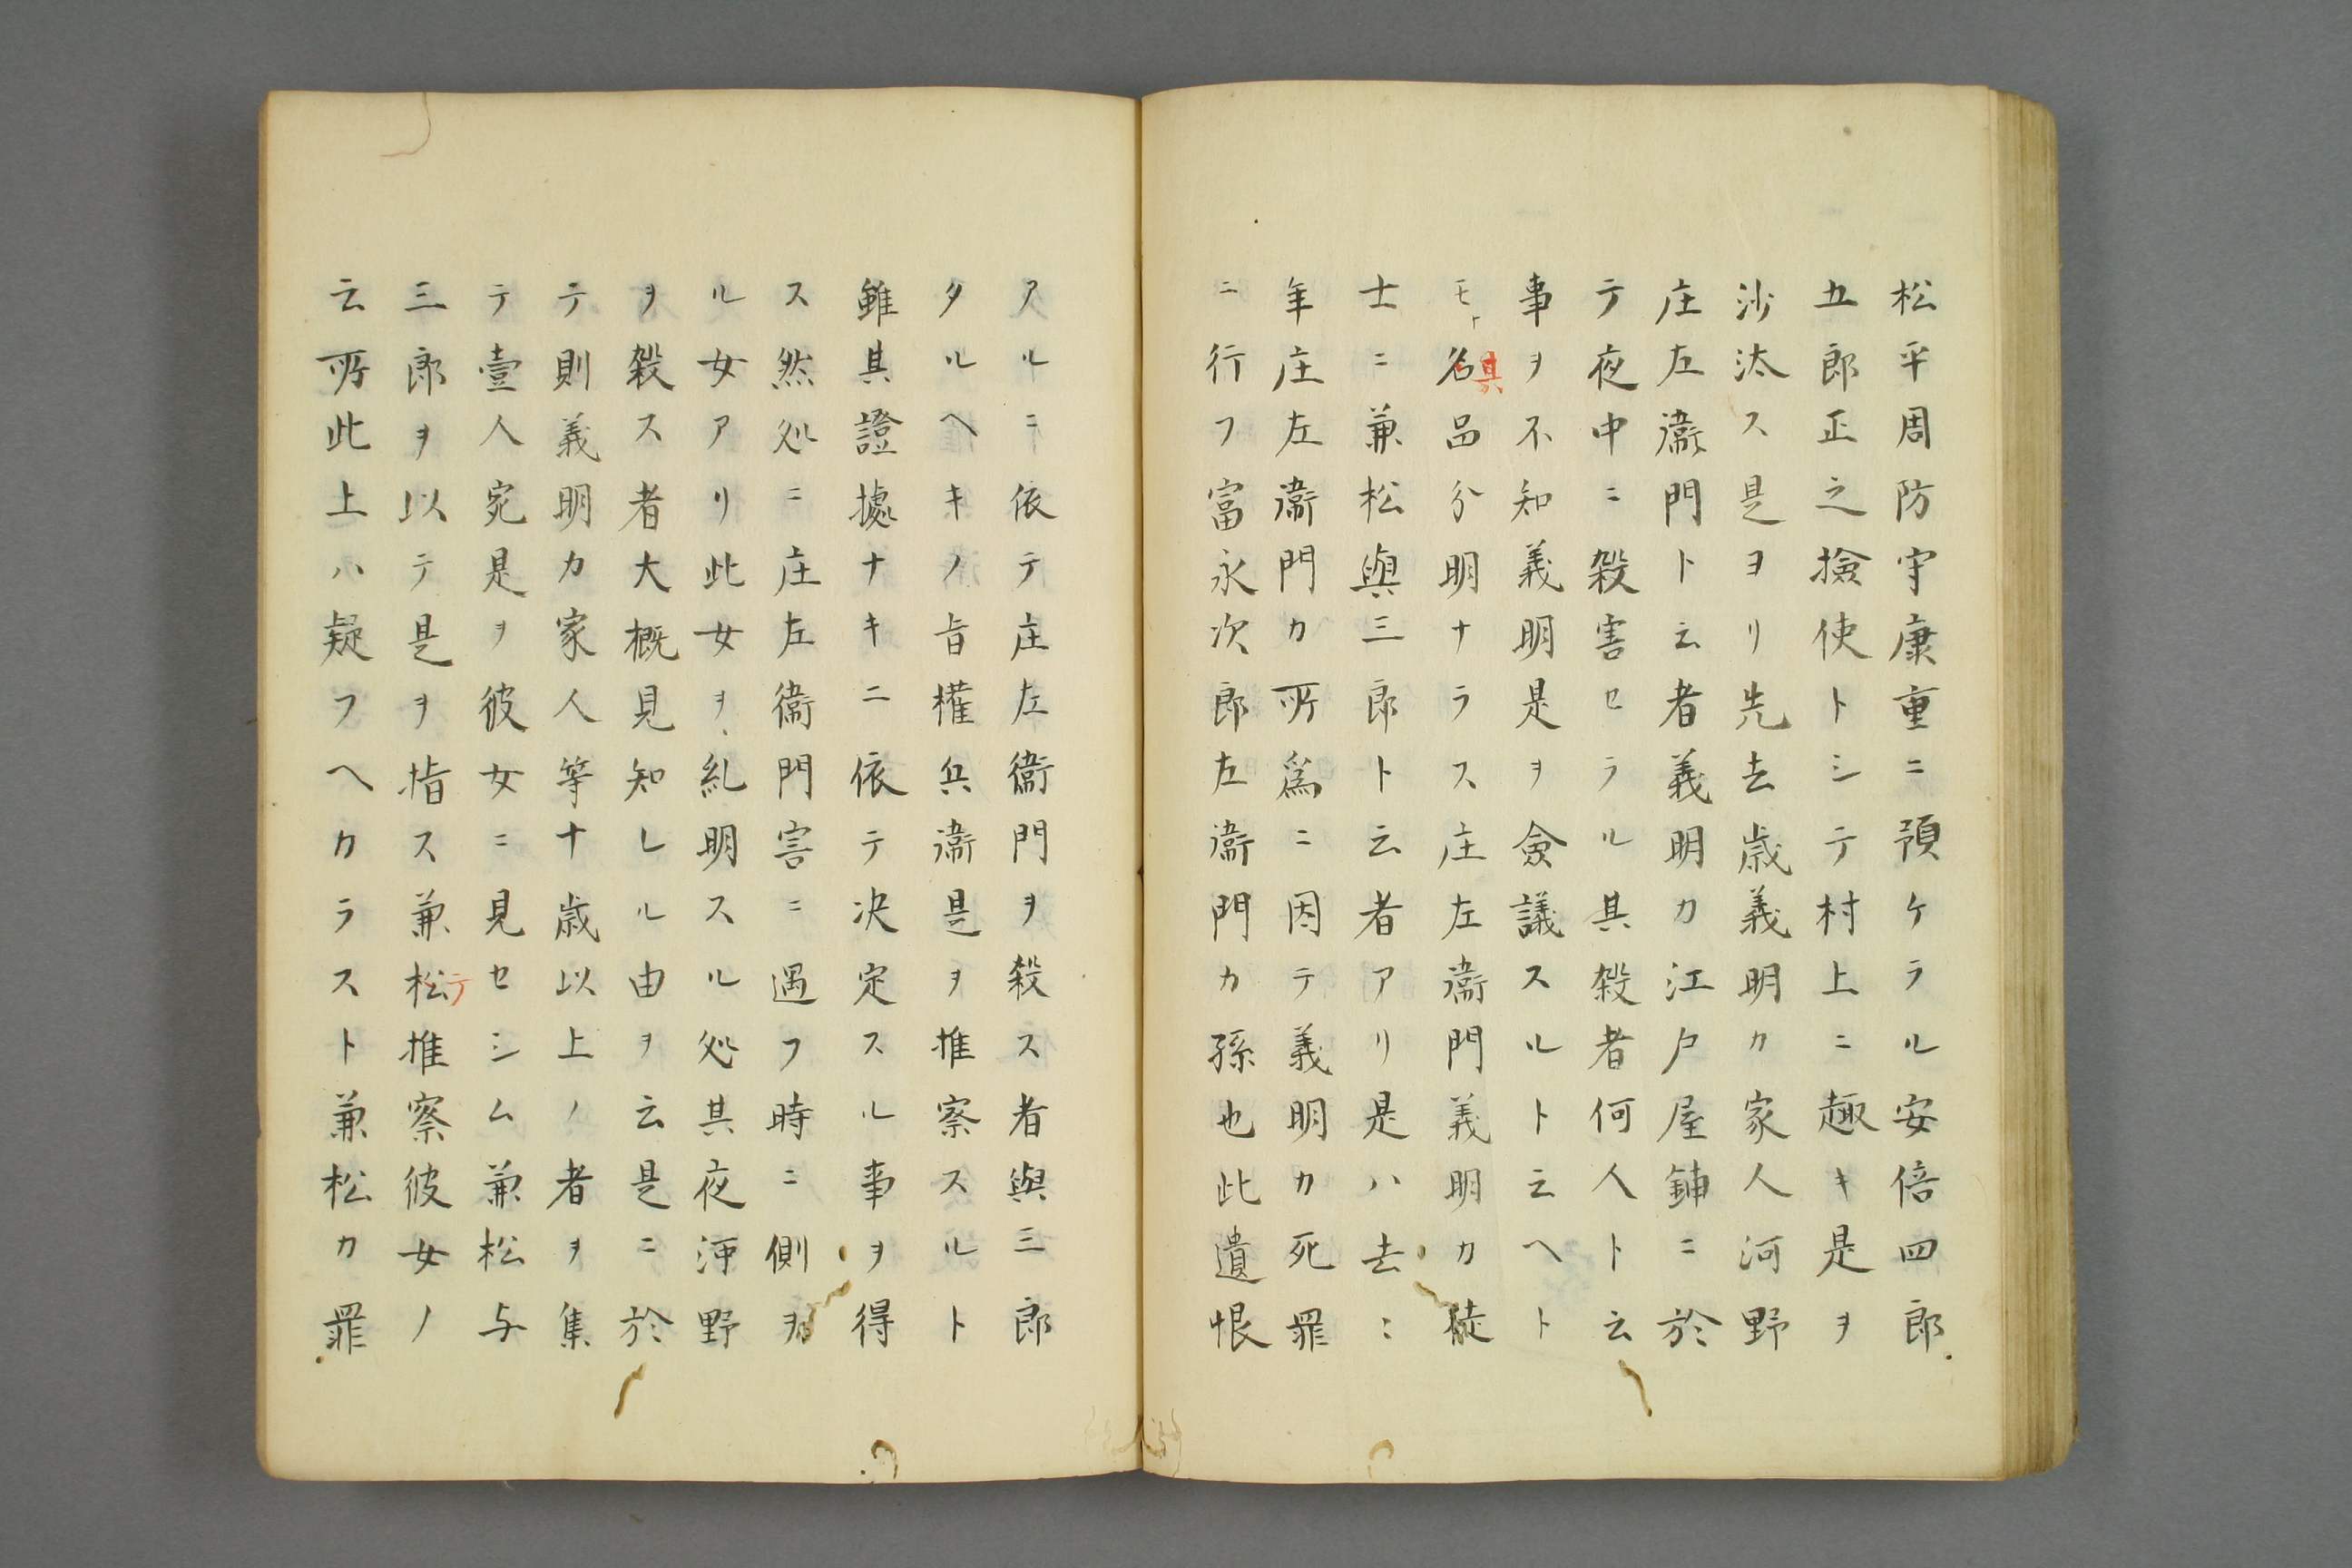 松平周防守康重ニ預ケラル安倍四郎
五郎正之撿使トシテ村上ニ趣キ是ヲ
沙汰ス是ヨリ先去歳義明カ家人河野
庄左衞門ト云者義明カ江戸屋鋪ニ於
テ夜中ニ殺害セラル其殺者何人ト云
事ヲ不知義明是ヲ僉議スルト云ヘト
モ其名品分明ナラス庄左衞門義明カ徒
士ニ兼松與三郎ト云者アリ是ハ去ニ
年庄左衞門カ所爲ニ因テ義明カ死罪
ニ行フ富永次郎左衞門カ孫也此遺恨
アルニ依テ庄左衞門ヲ殺ス者與三郎
タルヘキノ旨權兵衞是ヲ推察スルト
雖其證據ナキニ依テ决定スル事ヲ得
ス然処ニ庄左衞門害ニ遇フ時ニ側ヲ
ル女アリ此女ヲ糺明スル処其夜河野
ヲ殺ス者大概見知レル由ヲ云是ニ於
テ則義明カ家人等十歳以上ノ者ヲ集
テ壹人宛是ヲ彼女ニ見セシム兼松与
三郎ヲ以テ是ヲ指ス兼松テ推察彼女ノ
云所此上ハ疑フヘカラスト兼松カ罪